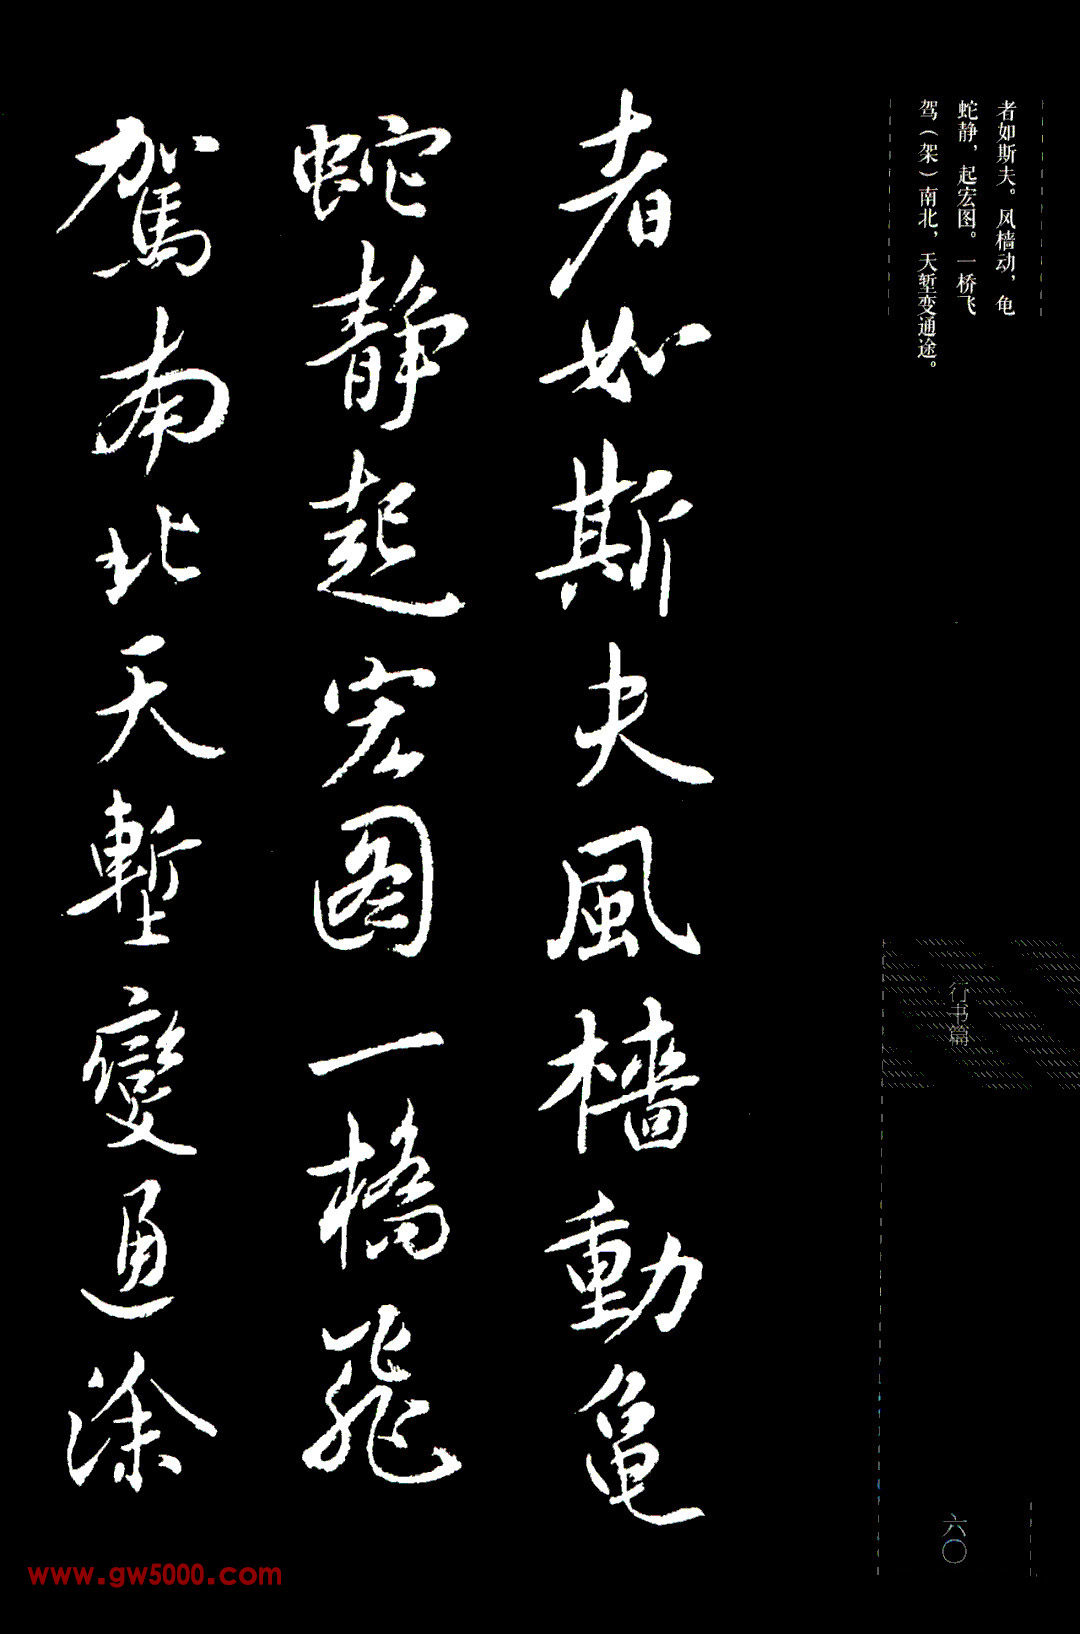 者如斯夫。风樯动，龟
蛇静，起宏图。一桥飞
驾（架）南北，天堑变通途。
者如斯夫風樯動龟
蛇静起宏图一橋飛
駕南北天塹變通涂
行书篇
六〇
www.gw5000.com